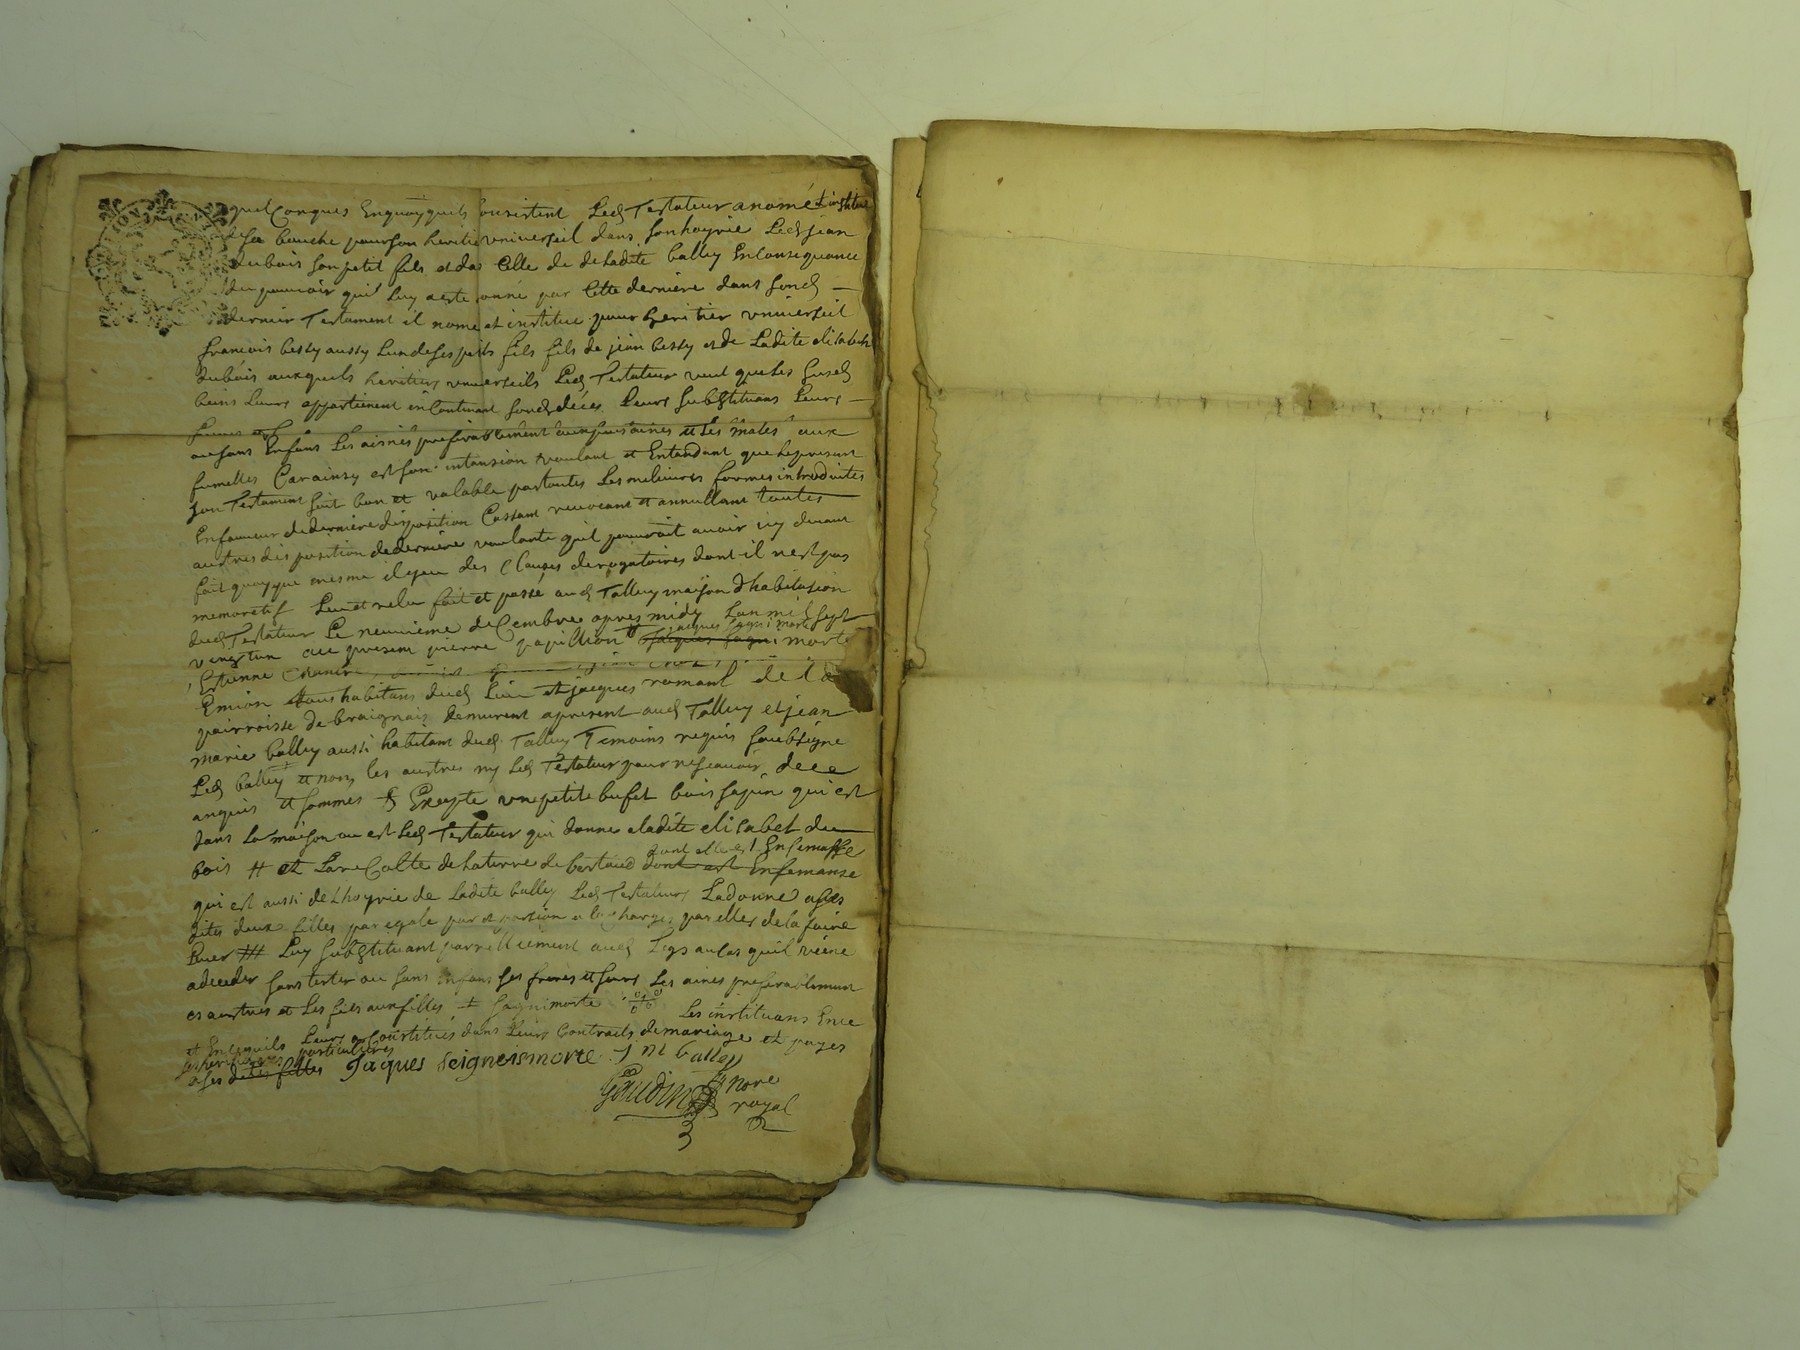 quelConques Enquoyquils Consistent Led Testateur a nomé et institué
de sa bouche pour son heritier vniverseil dans son hoyrie Led jean
dubois son petit fils et das Celle de de Ladite balley En Consequance
du pouvoir quil luy a esté donné par Cette derniere dans sond
dernier Testament il nome et institue pour heritier vniverseil
francois bessy aussy Lun de ses petits fils fils de jean bessy et de Ladite elisabeth
dubois auxquels heritiers vniverseils Led Testateur veut que les susd
biens Leurs appartienent inContinant sond déces Leurs subgtituans Leurs
ou sans Enfans Les aisnés preferablement aux puisnés et Les males aux
fumelles Car ainsy est son intansion voulant et Entandant que le present
son Testament soit bon et valable par toutes Les melieures formes introduites
En faveur de derniere disposition Cassant revocant et annullant toutes
autres disposition de derniere voulanté quil pouroit avoir icy devant
fait quoyque mesme il y eu des Clauses derogatoires dont il nest pas
memoratif Leu et relu fait et passé aud Talluy maison dhabitasion
dud Testateur Le neuvieme deCembre apres midy Lan mil sept
vengt un au presens pierre papillion jacques saignimorte
Estienne
Emion tous habitans dud Lieu et jacques romant de la
pairroisse de braignais demurent apresent aud Talluy et jean
marie balley aussi habitant dud Talluy Temoins requis soubsigné
Led balley et non les austres ny Led Testateur pour ne scauoir de ce
anquis et sommes Exepte vn petit bufet bois sapin qui est
dans La maison ou est Led Testateur qui donne a ladite elisabet du
bois # et La reColte de la terre de bertaud dont elle est Ensemassée
qui est aussi de Lhoyrie de Ladite balley Led Testateurs La donne a ses
dites deux filles par egale part et portion a la charge par elles de la faire
Luy subgtituant parelliement aud Legs au Cas quil viene
a deceder sans tester ou sans enfans ses freres et seurs Les aines preferablement
es austres et Les fils aux filles saignimorte Les instituans En Ce
et En Cequils Leurs a Constitués dans Leurs Contracts de mariage et payes
ses heritieres particulieres
a ses dites filles Jaques seignemorte J m balley
Gaudin nore
royal